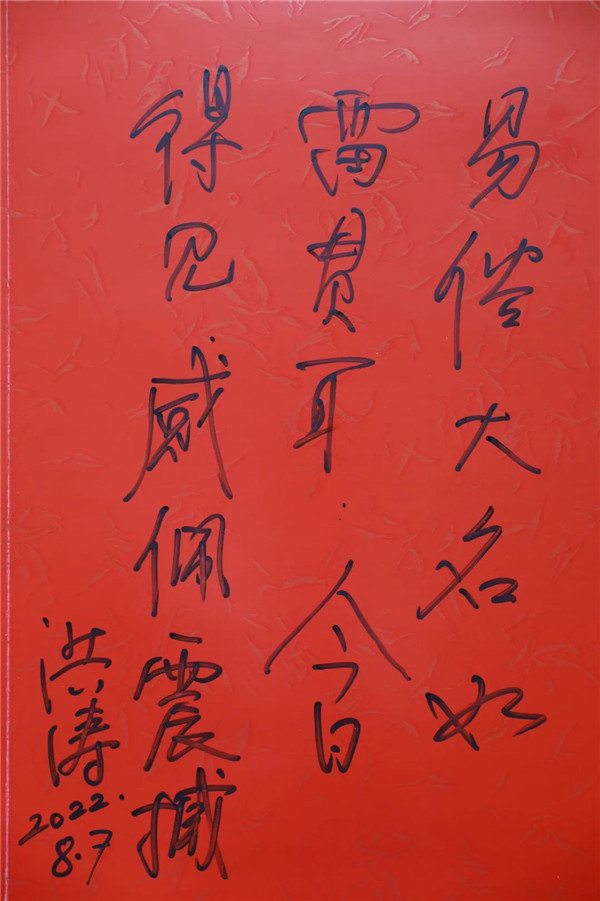 易俗大名如
雷贯耳.今日
得见威佩震撼
洪涛
2022.
8.7